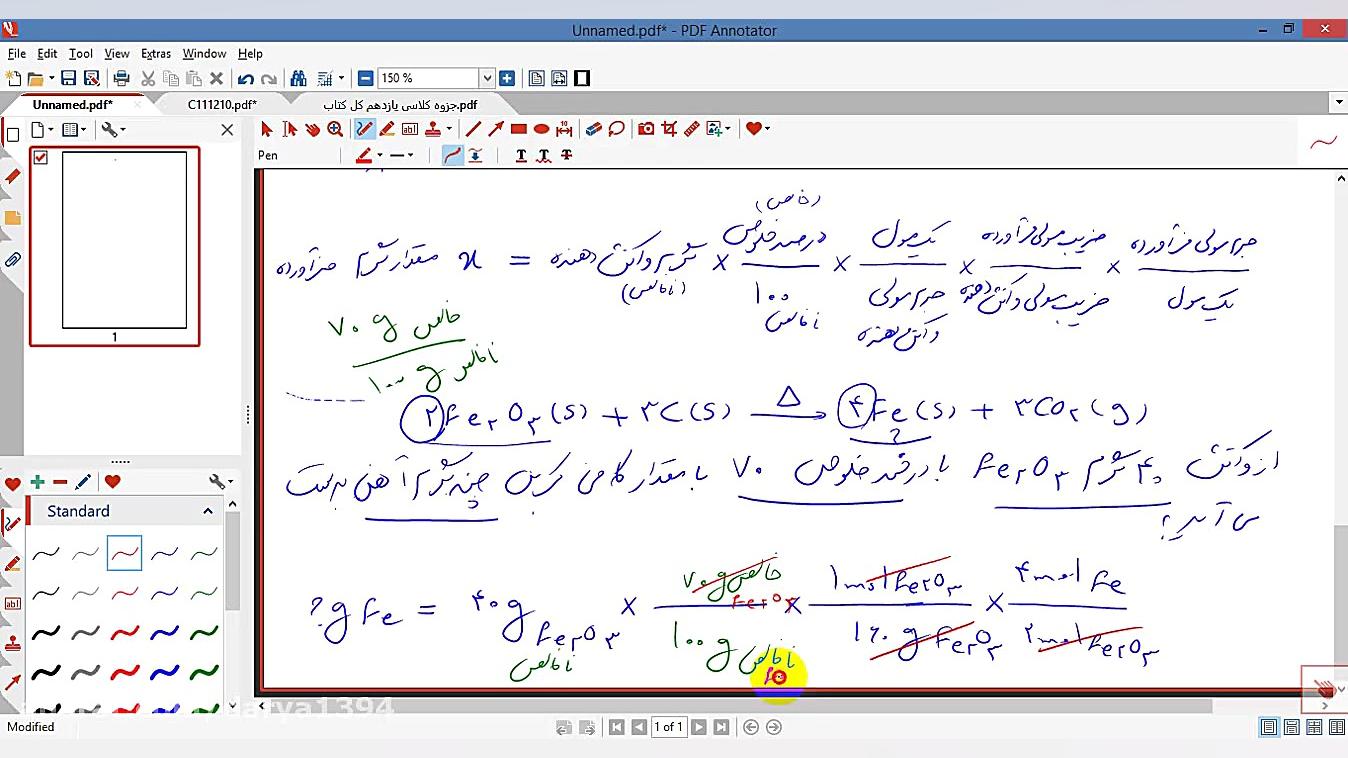 Unnamed.pdf* - PDF Annotator
File Edit Tool View Extras Window Help
150 %
Unnamed.pdf* C111210.pdf* جزوه کلاسی یازدهم کل کتاب.pdf
Pen
1
Standard
(خالص)
مقدار گرم فرآورده x = گرم واکنش دهنده (ناخالص) × درصد خلوص / ۱۰۰ ناخالص × یک مول / جرم مولی واکنش دهنده × ضریب مولی فرآورده / ضریب مولی واکنش دهنده × جرم مولی فرآورده / یک مول
۷۰ g خالص
۱۰۰ g ناخالص
۲Fe۲O۳(s) + ۳C(s) Δ→ ۴Fe(s) + ۳CO۲(g)
?
از واکنش ۴۰ گرم Fe۲O۳ با درصد خلوص ۷۰ با مقدار کافی کربن چند گرم آهن به دست
می آید؟
?g Fe = ۴۰ g Fe۲O۳ ناخالص × ۷۰ g خالص Fe۲O۳ / ۱۰۰ g ناخالص × ۱ mol Fe۲O۳ / ۱۶۰ g Fe۲O۳ × ۴ mol Fe / ۲ mol Fe۲O۳
Modified
1 of 1